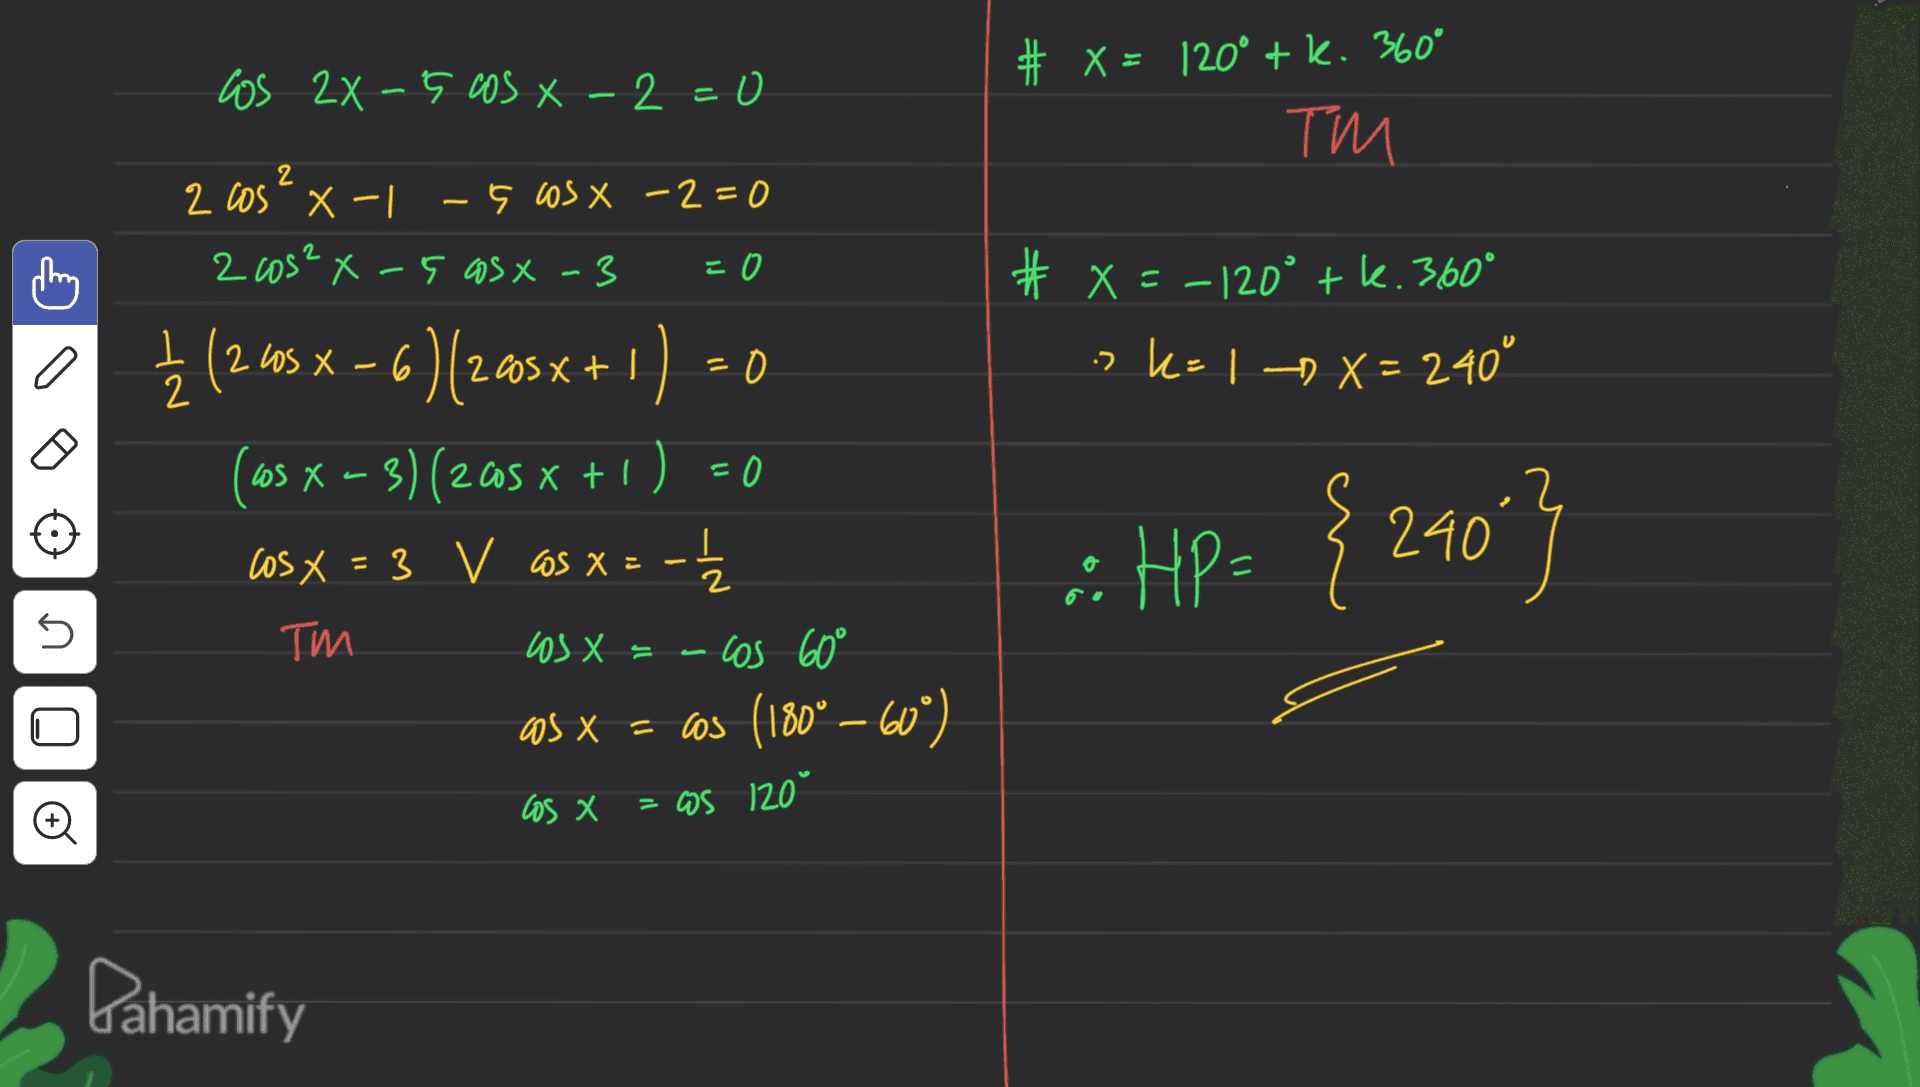 cos 2x - 5 cos x - 2 = 0
2 cos² x - 1 - 5 cos x - 2 = 0
2 cos² x - 5 cos x - 3 = 0
1/2 (2 cos x - 6)(2 cos x + 1) = 0
(cos x - 3)(2 cos x + 1) = 0
cos x = 3 V cos x = - 1/2
TM cos x = - cos 60°
cos x = cos (180° - 60°)
cos x = cos 120°
# x = 120° + k. 360°
TM
# x = -120° + k. 360°
∴ k = 1 → x = 240°
∴ HP = {240°}
Pahamify